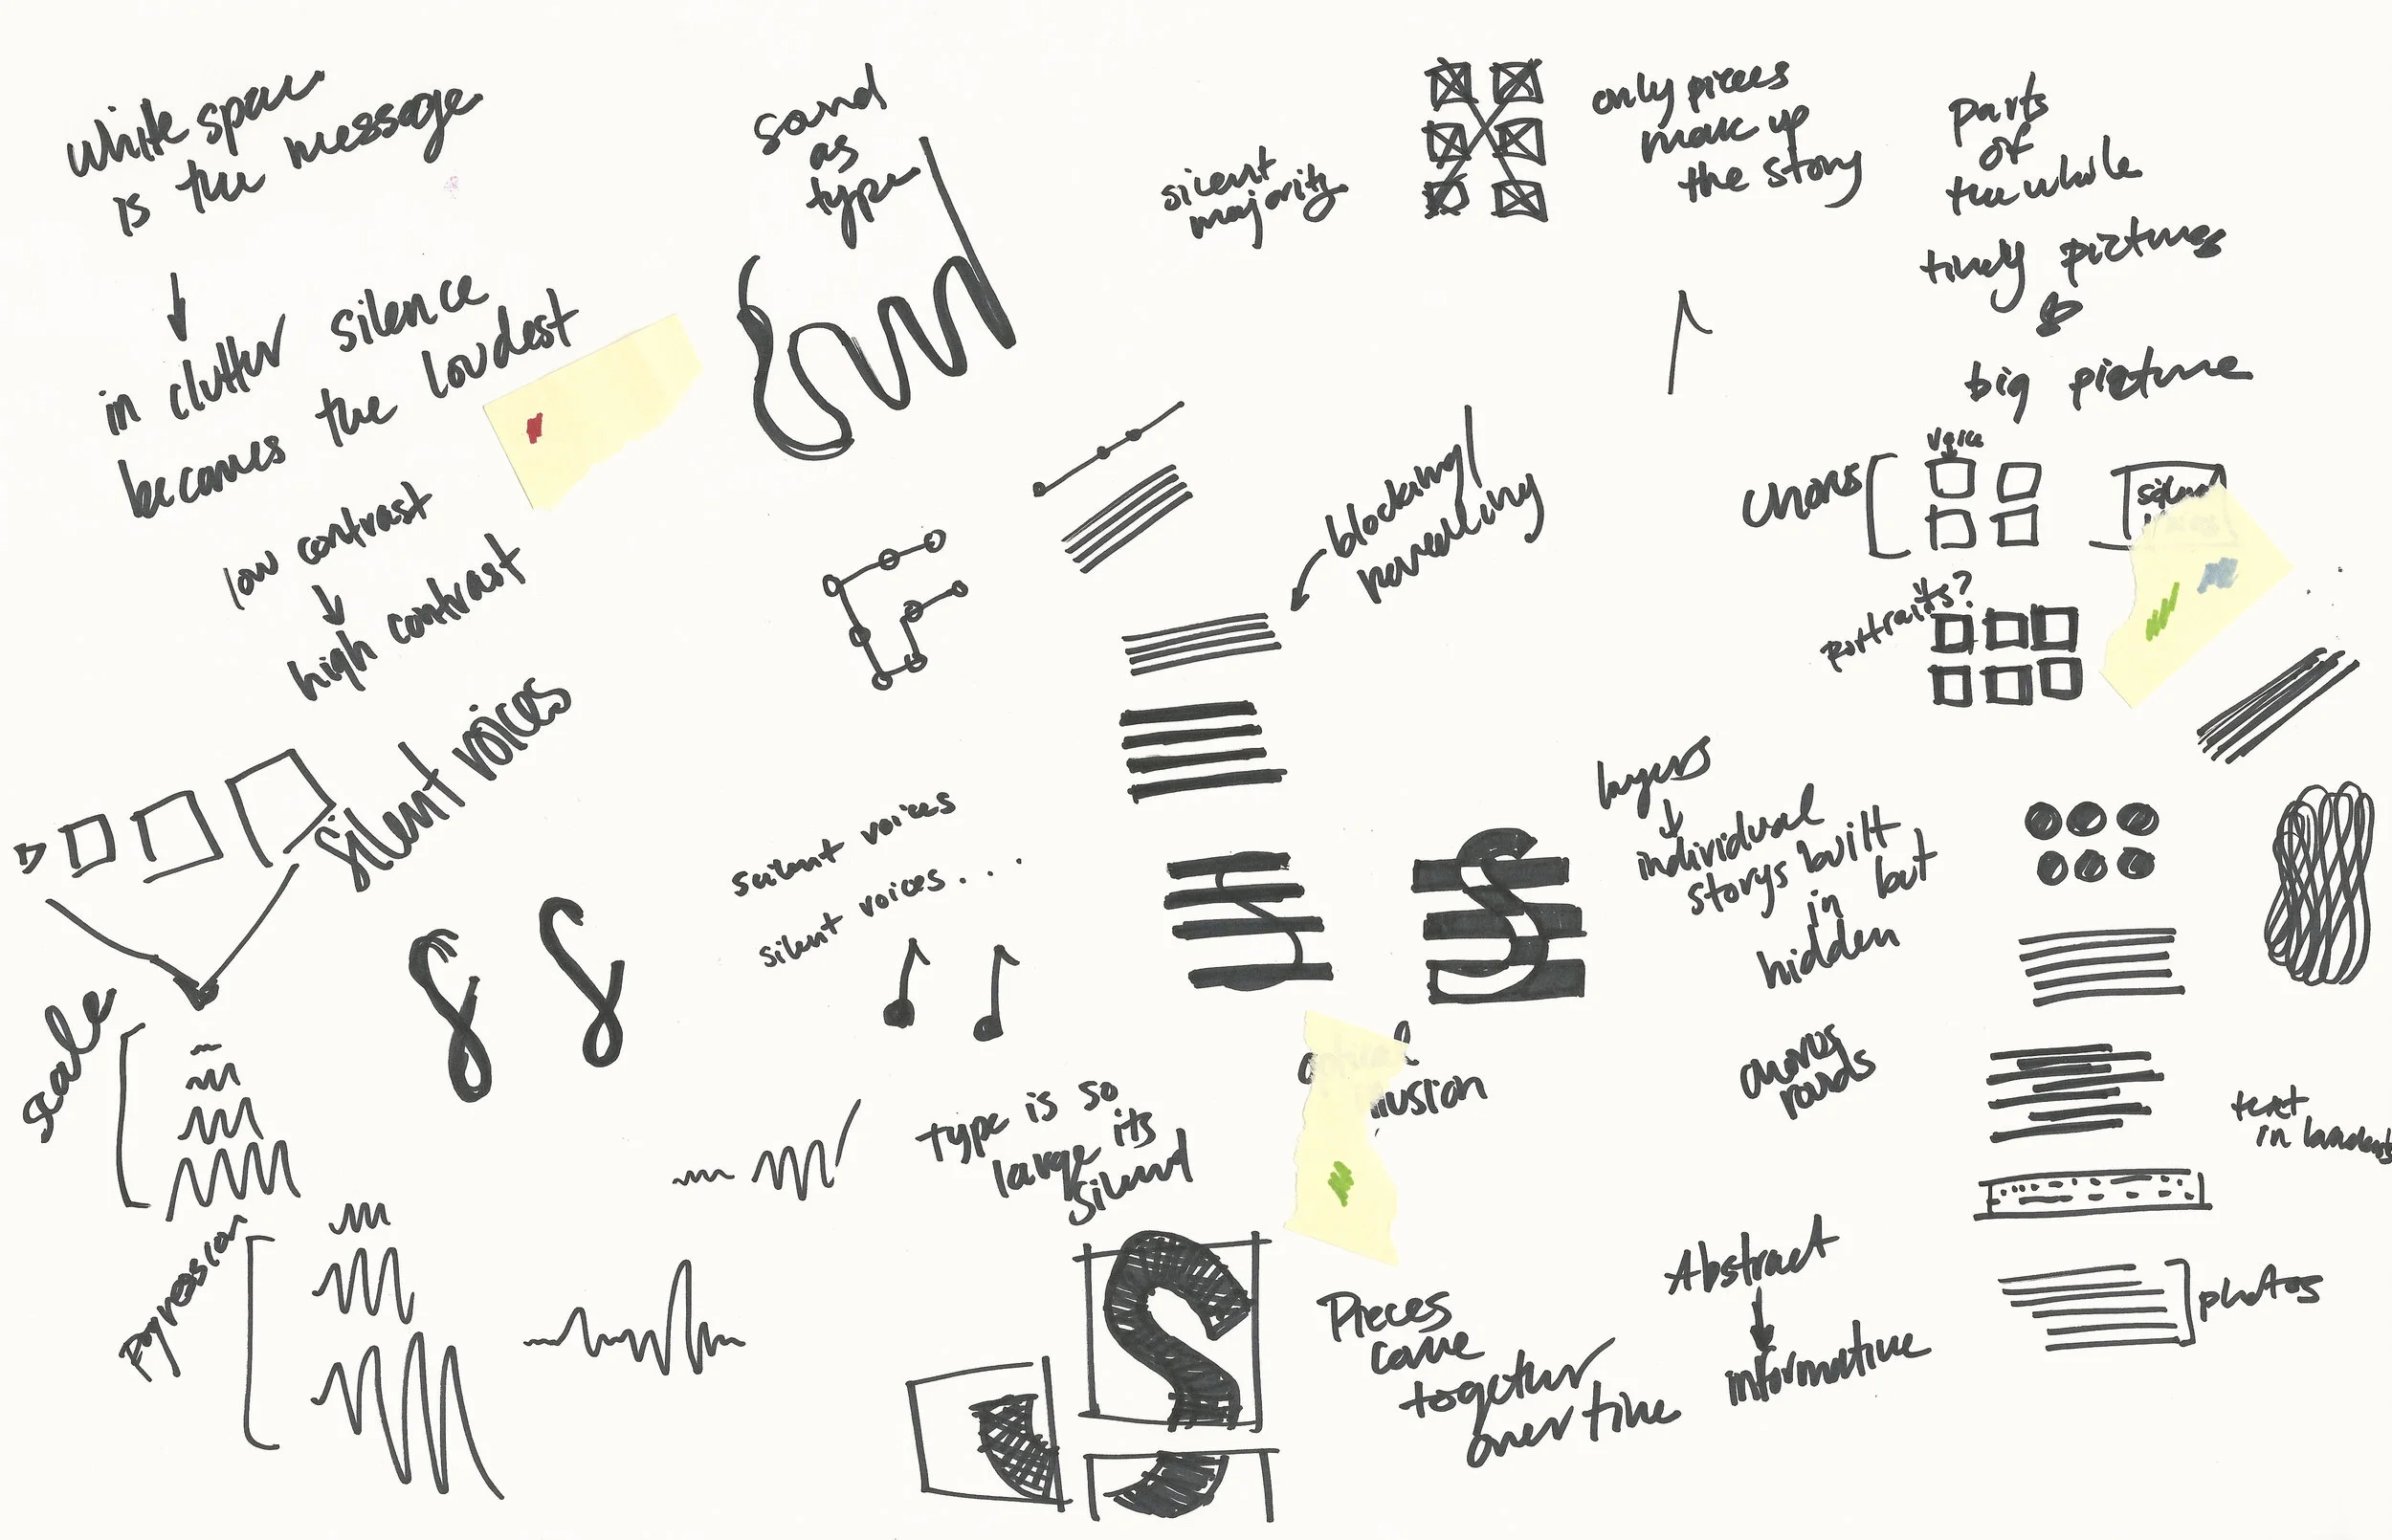 white space
is the message
in clutter silence
becomes the loudest
low contrast
high contrast
silent voices
scale
sound
as
type
silent voices
silent voices...
type is so
large its
silent
silent
majority
only pieces
make up
the story
parts
of
the whole
tiny pictures
big picture
blocking/
revealing
voice
chorus
portraits?
layers
individual
storys built
in but
hidden
illusion
chorus
rounds
text
in
photos
Pieces
come
together
over time
Abstract
informative